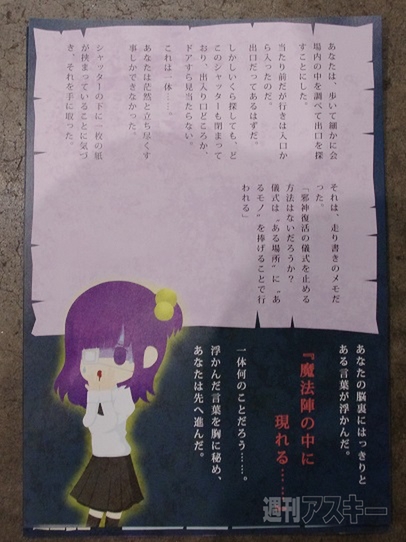 あなたは、歩いて細かに会
場内の中を調べて出口を探
すことにした。
当たり前だが行きは入口か
ら入ったのだ。
出口だってあるはずだ。
しかしいくら探しても、ど
このシャッターも閉まって
おり、出入り口どころか、
ドアすら見当たらない。
これは一体……。
あなたは茫然と立ち尽くす
事しかできなかった。
シャッターの下に一枚の紙
が挟まっていることに気づ
き、それを手に取った。
それは、走り書きのメモだ
った。
「邪神復活の儀式を止める
方法はないだろうか？
儀式は"ある場所"に"あ
るモノ"を捧げることで行
われる」
あなたの脳裏にはっきりと
ある言葉が浮かんだ。
『魔法陣の中に
現れる……
一体何のことだろう……。
浮かんだ言葉を胸に秘め、
あなたは先へ進んだ。
週刊アスキー